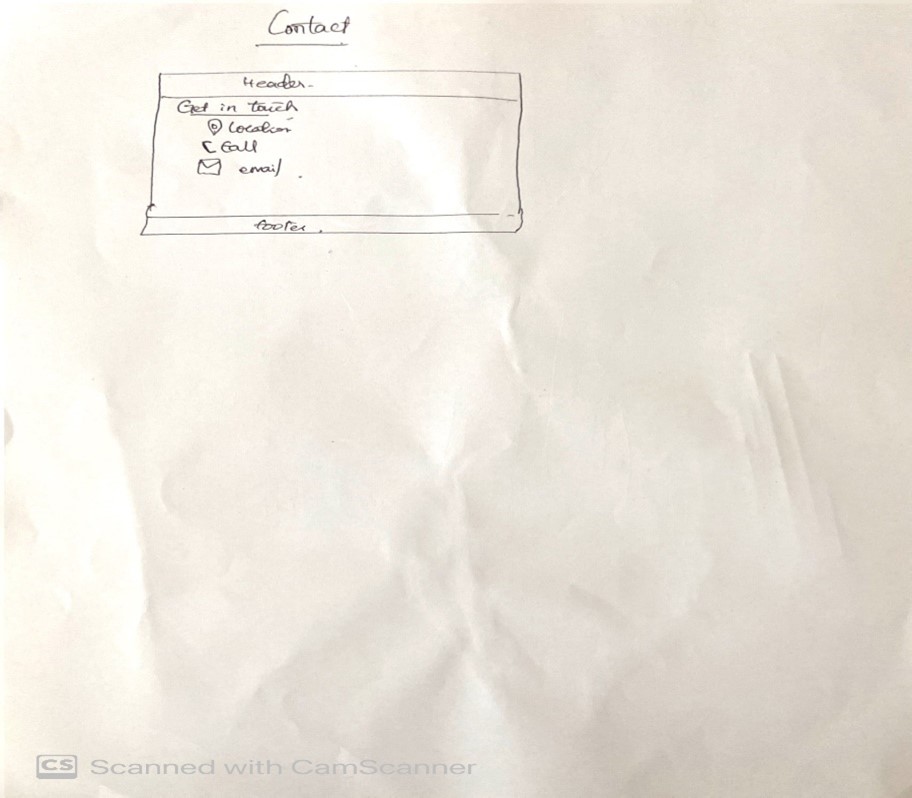 Contact
Header
Get in touch
Location
Call
email
footer
CS Scanned with CamScanner